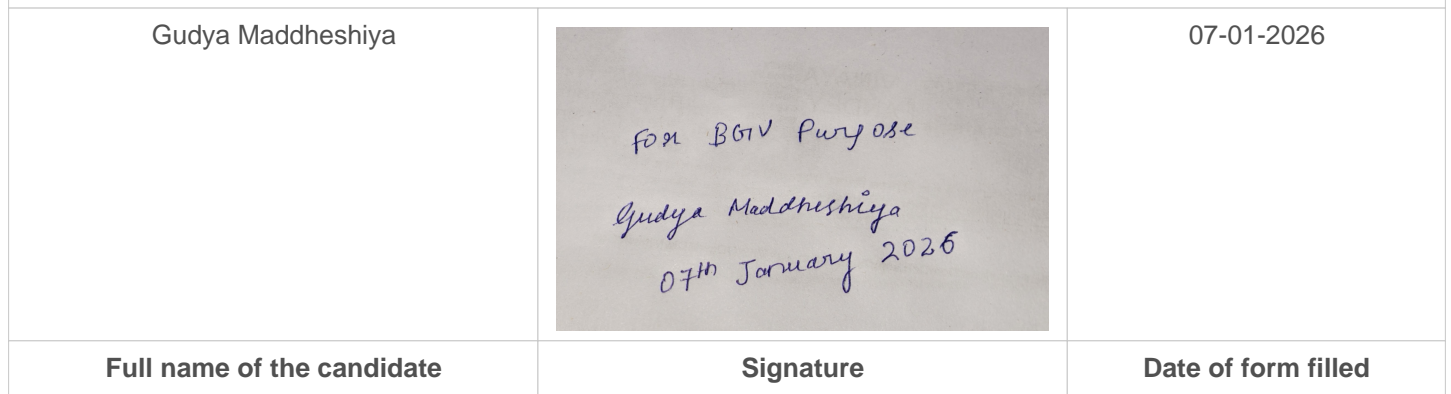 Gudya Maddheshiya
07-01-2026
For BGV Purpose
Gudya Maddheshiya
07th January 2026
Full name of the candidate
Signature
Date of form filled